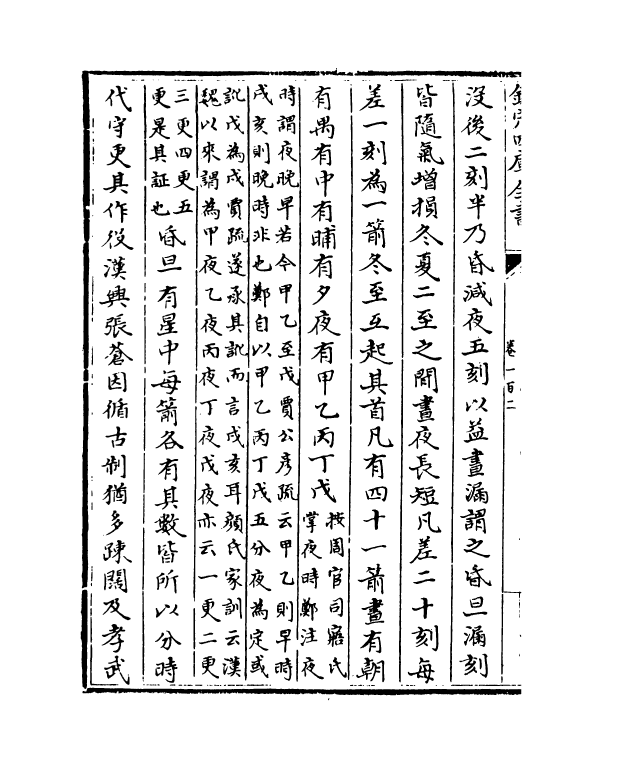 欽定四庫全書
卷一百二
沒後二刻半乃昏減夜五刻以益晝漏謂之昏旦漏刻
皆隨氣增損冬夏二至之間晝夜長短凡差二十刻每
差一刻為一箭冬至互起其首凡有四十一箭晝有朝
有禺有中有晡有夕夜有甲乙丙丁戊
按周官司寤氏
掌夜時鄭注夜
時謂夜晚早若今甲乙至戊賈公彥疏云甲乙則早時
戌亥則晚時非也鄭自以甲乙丙丁戊五分夜為定或
訛戊為戌賈疏遂承其訛而言戌亥耳顏氏家訓云漢
魏以來謂為甲夜乙夜丙夜丁夜戊夜亦云一更二更
三更四更五
更是其証也
昏旦有星中每箭各有其數皆所以分時
代守更其作役漢興張蒼因循古制猶多疎闊及孝武